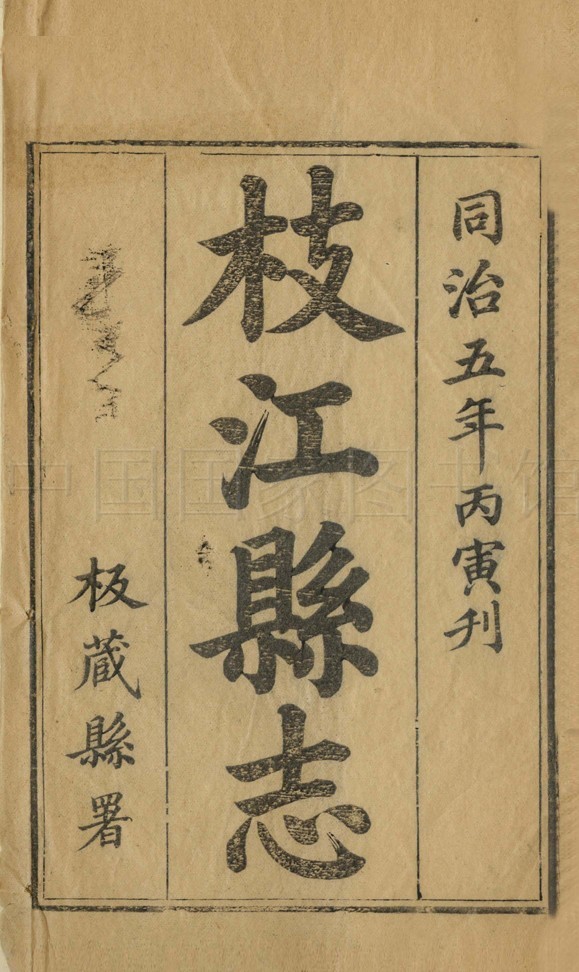 同治五年丙寅刋
枝江縣志
板蔵縣署
中国国家图书馆